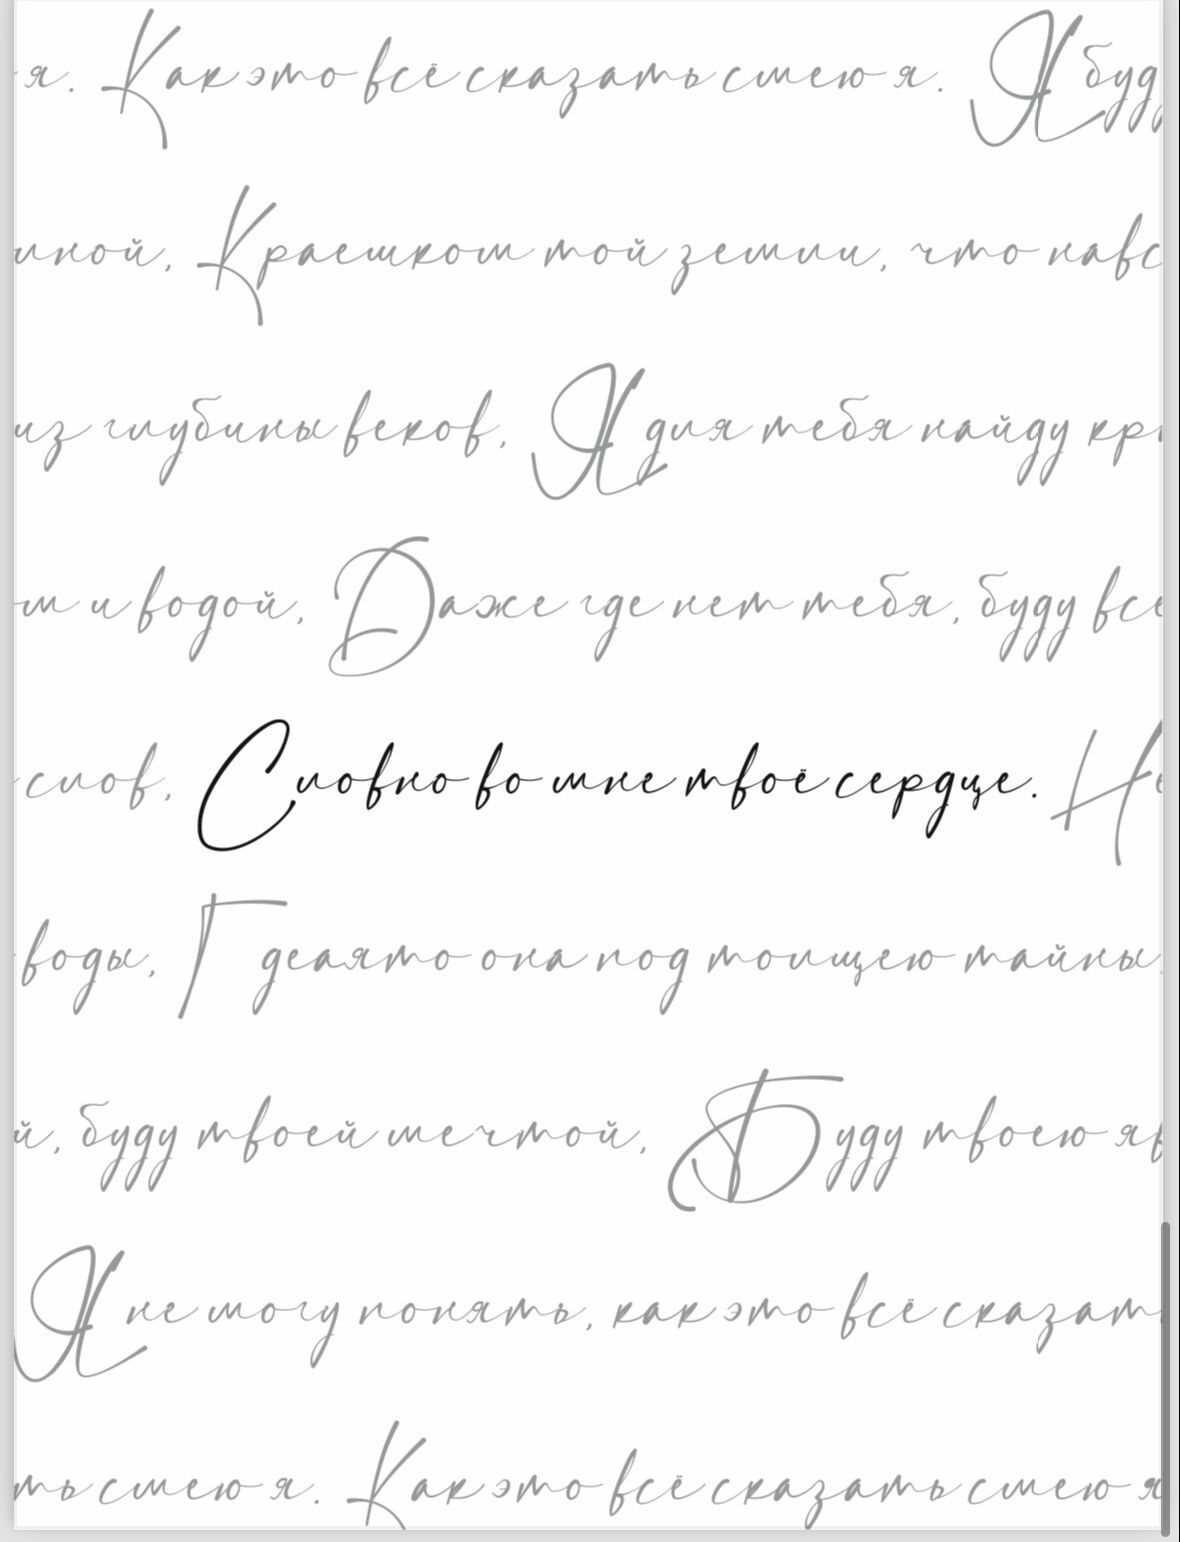 я. Как это всё сказать смею я. Я буд
иной, Краешком той земли, что навс
из глубины веков, Я для тебя найду кр
м и водой, Даже где нет тебя, буду все
слов, Словно во мне твоё сердце. Не
воды, Где а я то она под толщею тайны
й, буду твоей мечтой, Буду твоею яв
Я не могу понять, как это всё сказат
ть смею я. Как это всё сказать смею я